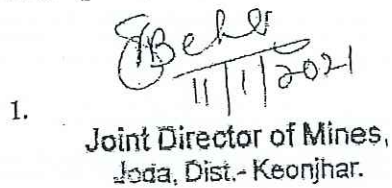 Behera
11/1/2021
1.
Joint Director of Mines,
Joda, Dist.- Keonjhar.